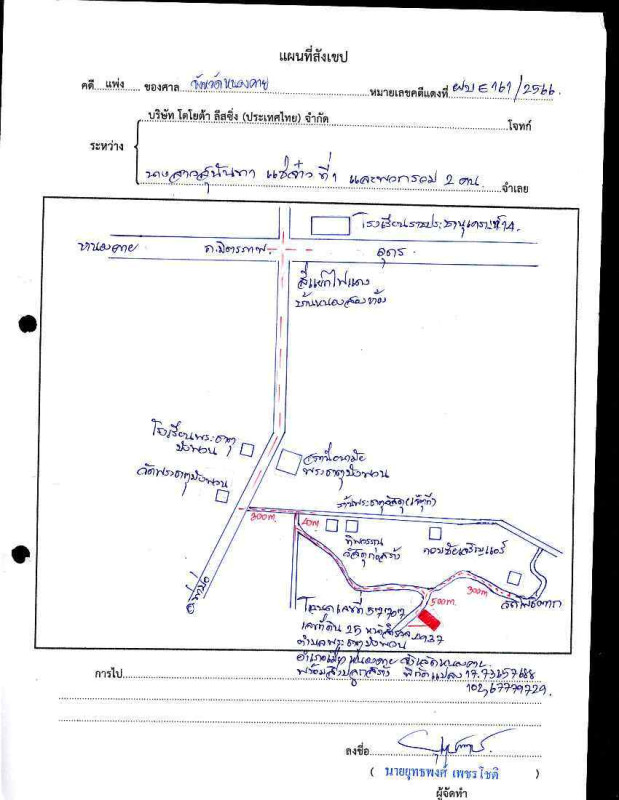 แผนที่สังเขป
คดี แพ่ง ของศาล จังหวัดหนองคาย หมายเลขคดีแดงที่ ผบ E 161/2566.
บริษัท โตโยต้า ลีสซิ่ง (ประเทศไทย) จำกัด โจทก์
ระหว่าง
นางสาวสุนันทา แซ่ล้าว ที่ 1 และพวกรวม 2 คน จำเลย
โรงเรียนราชประชานุเคราะห์ 14.
หนองคาย ถ.มิตรภาพ อุดร
สี่แยกไฟแดง
บ้านหนองสองห้อง
โรงเรียนพระธาตุ
บังพวน
สถานีอนามัย
พระธาตุบังพวน
วัดพระธาตุบังพวน
300m. 40m.
วัสดุก่อสร้าง
300m.
500m.
โฉนดเลขที่ 57707
เลขที่ดิน 25
ตำบลพระธาตุบังพวน
อำเภอเมืองหนองคาย จังหวัดหนองคาย
พร้อมสิ่งปลูกสร้าง พิกัดแปลง 17.73257688
102.67779729.
การไป
ลงชื่อ
( นายยุทธพงศ์ เพชรโชติ )
ผู้จัดทำ